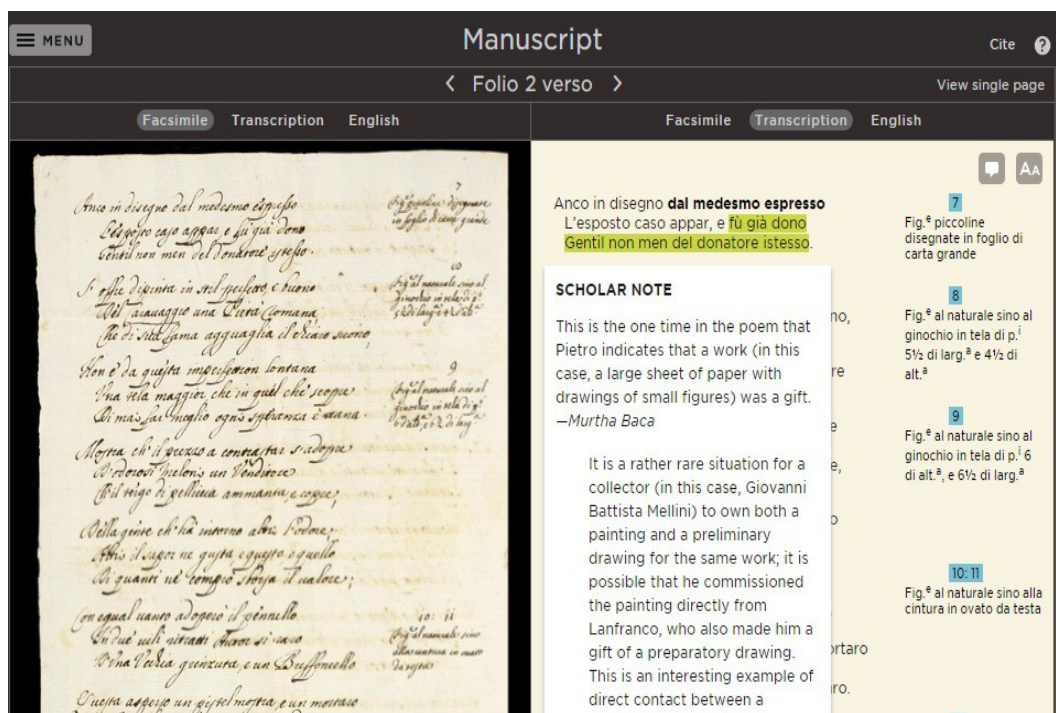 MENU
Manuscript
Cite ?
< Folio 2 verso >
View single page
Facsimile Transcription English
Facsimile Transcription English
7
Anco in disegno dal medesmo espresso
L'esposto caso appar, e fù già dono
Gentil non men del donatore istesso.
S'offre dipinta in stil perfetto, e buono
Del Caravaggio una Pietà Romana,
Che di sua fama agguaglia il chiaro suono,
Non è da questa lontana
Una tela maggior che in quel che scopre
Di mai far meglio ogni speranza è vana.
Mostra ch'il prezzo a contrastar s'adopre
D'odorosi meloni un Venditore
Ch'il tergo di pelliccia ammanta, e copre,
Della gente ch'hà intorno altri l'odore,
Altri il sapor ne gusta e questo e quello
Di quanti ne il valore;
Con egual vanto adoperò il pennello
In due uili ritratti si raro
D'una Vechia grinzuta, e un Buffoncello
Questa asperso un pistel mostra, e un mortaro
Fig.e piccoline disegnate
in foglio di carta grande
Fig.e al naturale sino al
9
Fig.e al naturale sino al
10: 11
Fig.e al naturale sino
alla cintura in ovato
da testa
AA
Anco in disegno dal medesmo espresso
L'esposto caso appar, e fù già dono
Gentil non men del donatore istesso.
SCHOLAR NOTE
This is the one time in the poem that
Pietro indicates that a work (in this
case, a large sheet of paper with
drawings of small figures) was a gift.
—Murtha Baca
It is a rather rare situation for a
collector (in this case, Giovanni
Battista Mellini) to own both a
painting and a preliminary
drawing for the same work; it is
possible that he commissioned
the painting directly from
Lanfranco, who also made him a
gift of a preparatory drawing.
This is an interesting example of
direct contact between a
no,
re
e
e,
o
ortaro
ro.
7
Fig.e piccoline
disegnate in foglio di
carta grande
8
Fig.e al naturale sino al
ginochio in tela di p.i
5½ di larg.a e 4½ di
alt.a
9
Fig.e al naturale sino al
ginochio in tela di p.i 6
di alt.a, e 6½ di larg.a
10: 11
Fig.e al naturale sino alla
cintura in ovato da testa